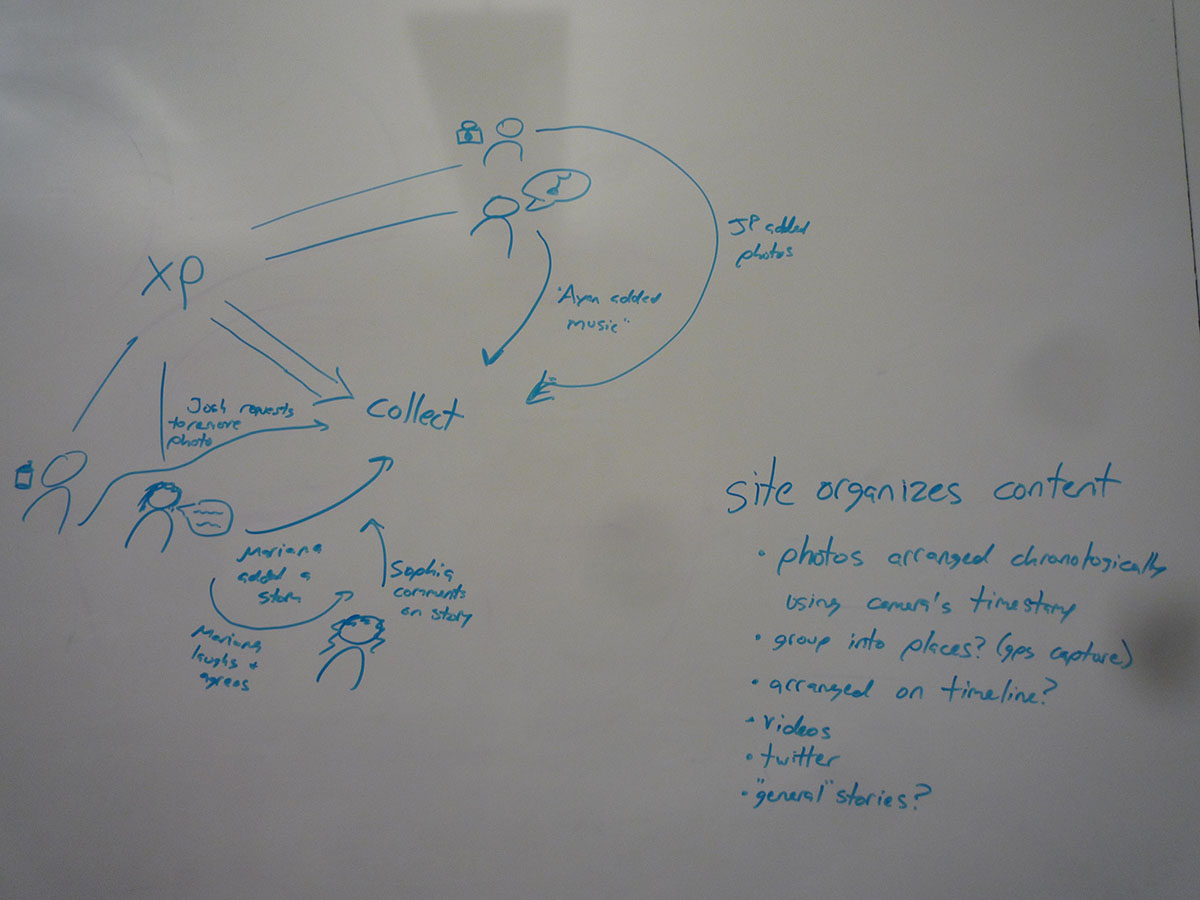 JP added
photos
"Ayan added
music"
xp
Josh requests
to remove
photo
collect
Mariana
added a
story
Sophia
comments
on story
Mariana
laughs +
agrees
site organizes content
• photos arranged chronologically
using camera's timestamp
• group into places? (gps capture)
• arranged on timeline?
• videos
• twitter
• "general" stories?